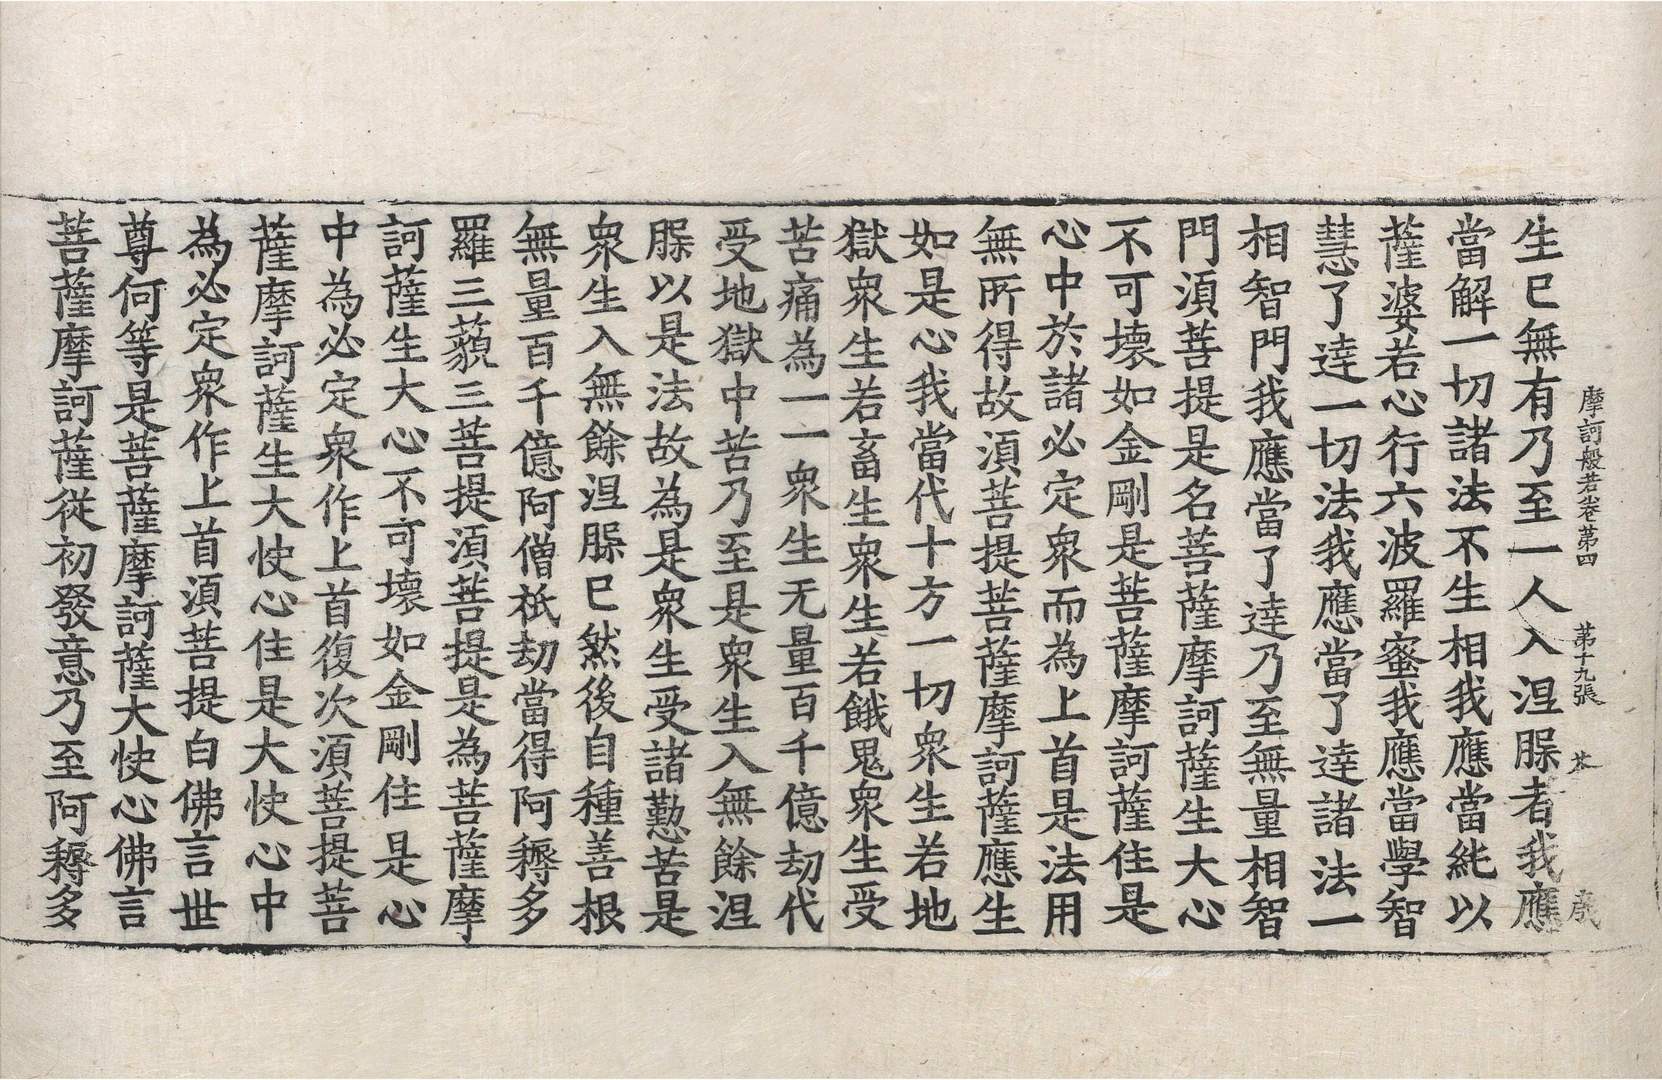 摩訶般若卷第四 第十九張 芥
生已無有乃至一人入涅槃者我應
當解一切諸法不生相我應當純以
薩婆若心行六波羅蜜我應當學智
慧了達一切法我應當了達諸法一
相智門我應當了達乃至無量相智
門須菩提是名菩薩摩訶薩生大心
不可壞如金剛是菩薩摩訶薩住是
心中於諸必定衆而為上首是法用
無所得故須菩提菩薩摩訶薩應生
如是心我當代十方一切衆生若地
獄衆生若畜生衆生若餓鬼衆生受
苦痛為一一衆生无量百千億劫代
受地獄中苦乃至是衆生入無餘涅
槃以是法故為是衆生受諸懃苦是
衆生入無餘涅槃已然後自種善根
無量百千億阿僧祇劫當得阿耨多
羅三藐三菩提須菩提是為菩薩摩
訶薩生大心不可壞如金剛住是心
中為必定衆作上首復次須菩提菩
薩摩訶薩生大快心住是大快心中
為必定衆作上首須菩提白佛言世
尊何等是菩薩摩訶薩大快心佛言
菩薩摩訶薩從初發意乃至阿耨多